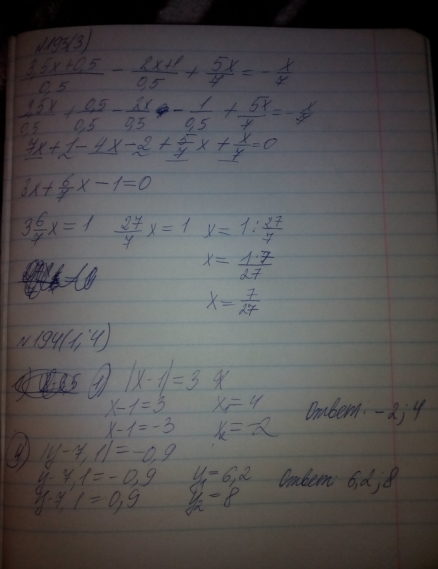 №193(3)
(3,5x+0,5)/0,5 - (2x+1)/0,5 + 5x/7 = - x/7
3,5x/0,5 + 0,5/0,5 - 2x/0,5 - 1/0,5 + 5x/7 = - x/7
7x+1-4x-2+5/7 x + x/7 = 0
3x+6/7 x - 1=0
3 6/7 x = 1 27/7 x = 1 x = 1 : 27/7
x = 1·7/27
x = 7/27
№194(1; 4)
1) |x-1| = 3
x-1=3 x₁=4
x-1=-3 x₂=-2 Ответ: -2; 4
4) |y-7,1|=-0,9
y-7,1=-0,9 y₁=6,2 Ответ 6,2; 8
y-7,1=0,9 y₂=8